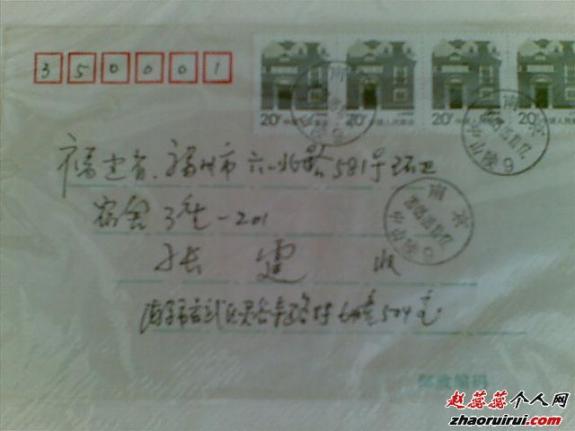 350001
20分 中国人民邮政
20分 中国人民邮政
20分 中国人民邮政
20
南京
南京
南京
福建省.福州市六一北路581号环卫
宿舍3座-201
张 建 收
南京市玄武区 504室
邮政编码
赵蕊蕊个人网
zhaoruirui.com